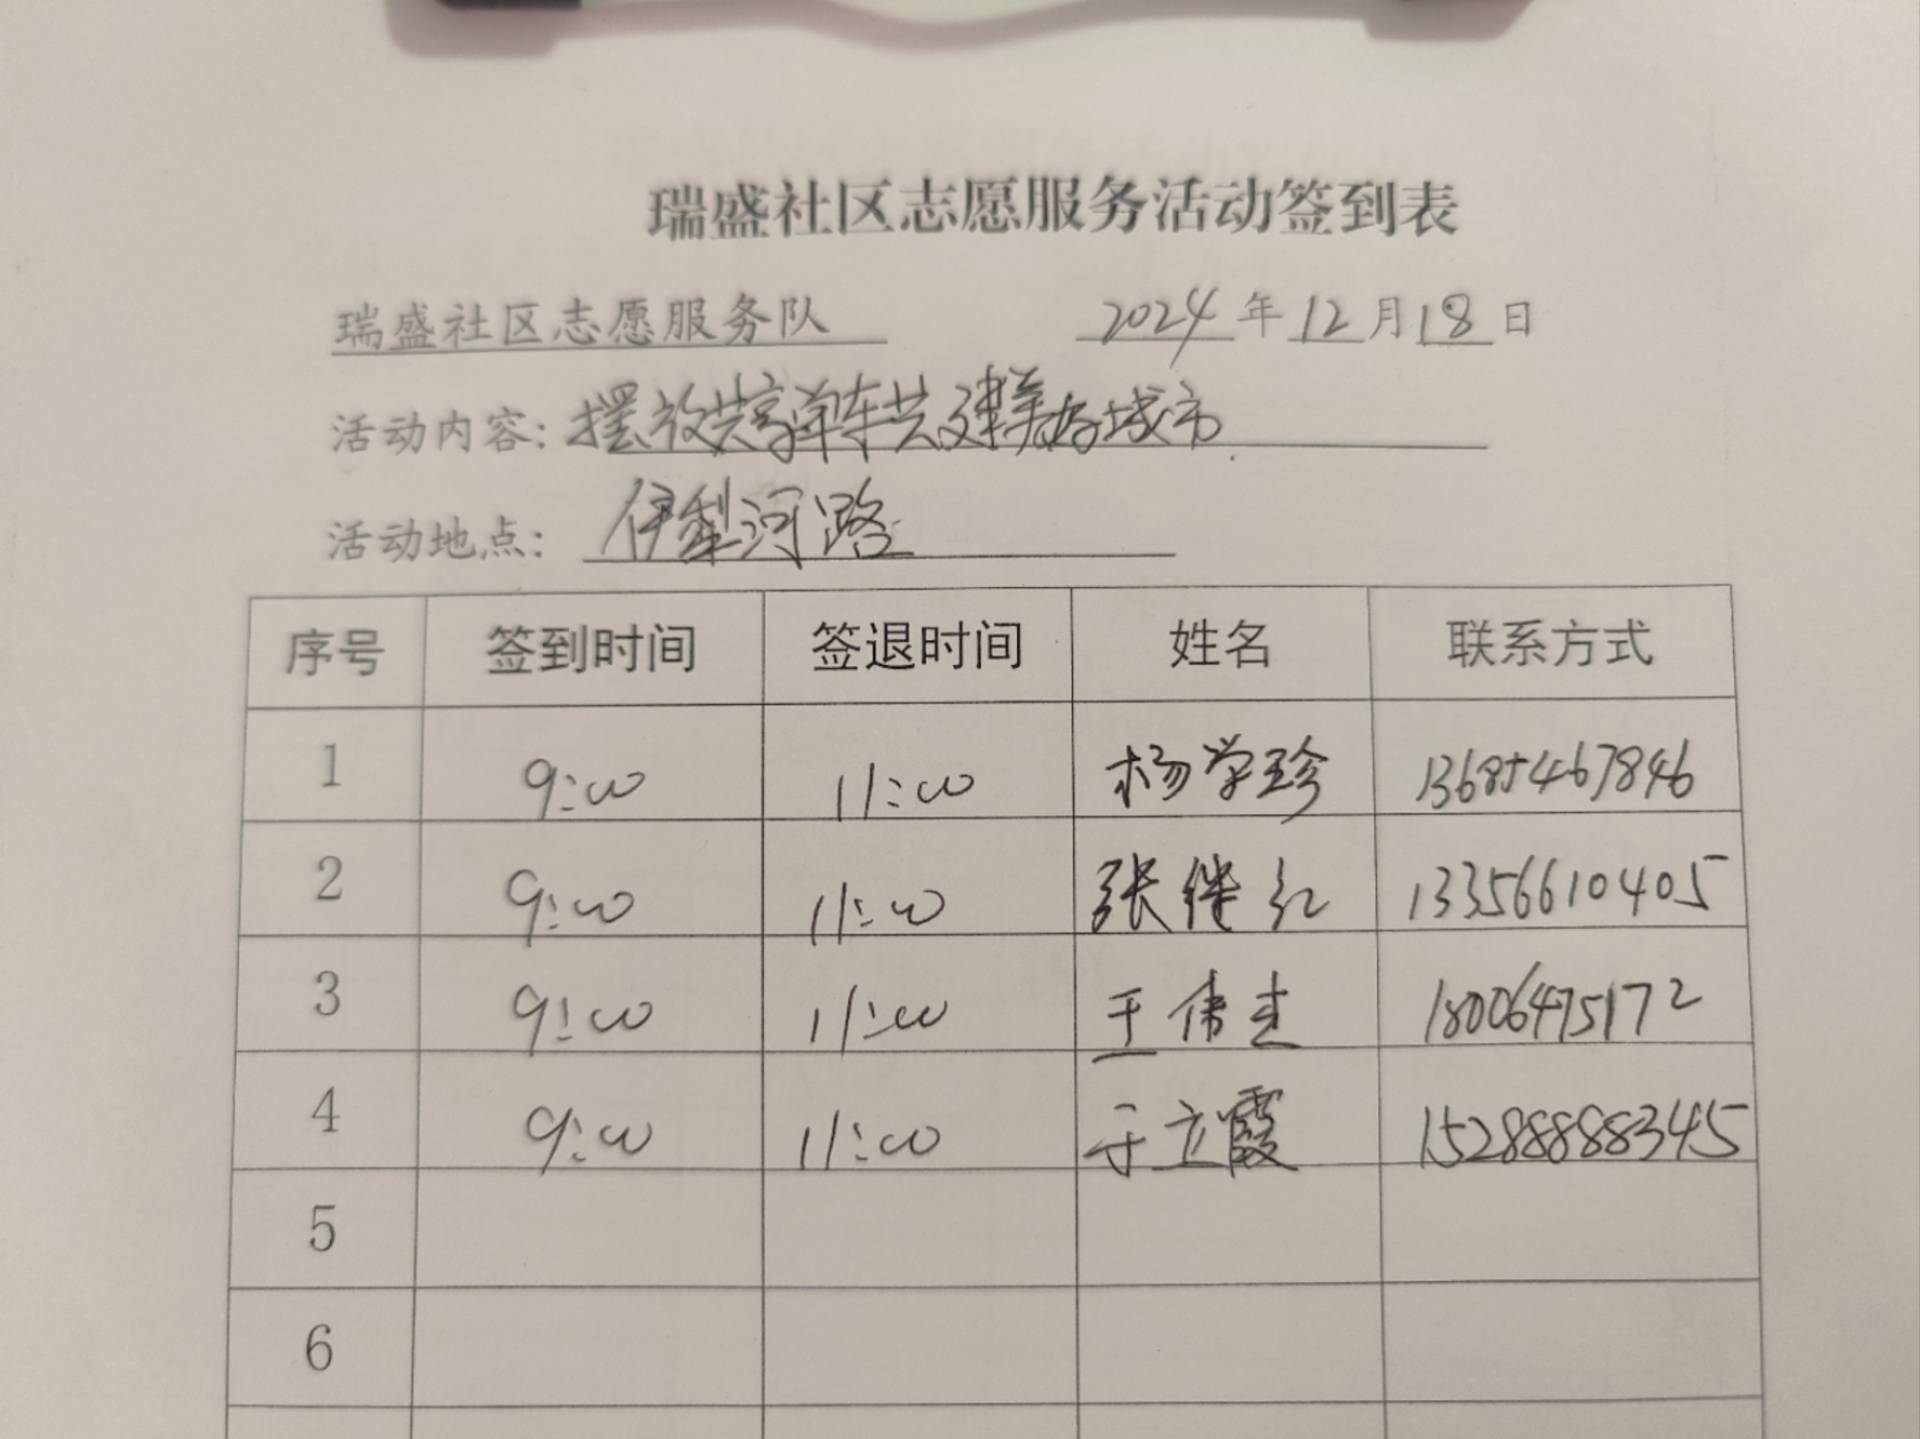 瑞盛社区志愿服务活动签到表
瑞盛社区志愿服务队 2024年12月18日
活动内容：摆放共享单车共建美好城市.
活动地点：伊犁河路
序号 签到时间 签退时间 姓名 联系方式
1 9:00 11:00 杨学珍 13685467846
2 9:00 11:00 张继红 13356610405
3 9:00 11:00 王伟杰 18006475172
4 9:00 11:00 于立霞 15288888345
5
6